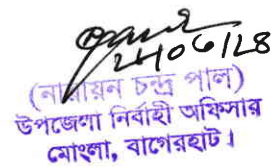 24/06/28
(নারায়ন চন্দ্র পাল)
উপজেলা নির্বাহী অফিসার
মোংলা, বাগেরহাট।